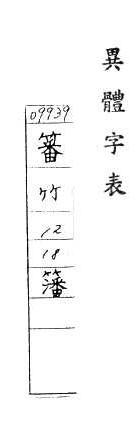 異體字表
09939
䉒
竹
12
18
籓